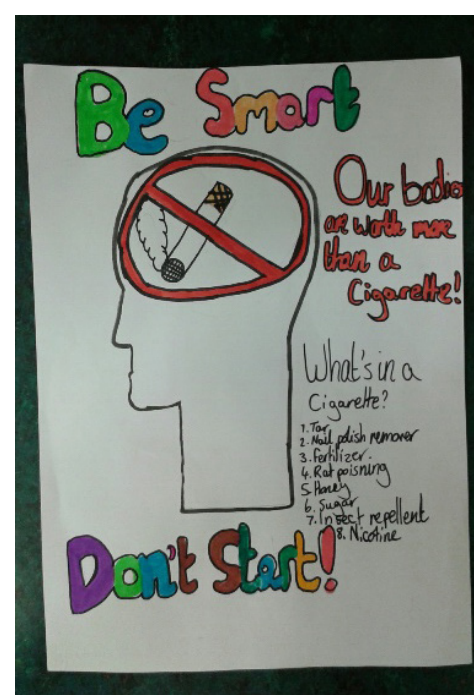 Be Smart
Our bodies
are worth more
than a
Cigarette!
What's in a
Cigarette?
1. Tar
2. Nail polish remover
3. Fertilizer.
4. Rat poisning
5. Honey
6. Sugar
7. Insect repellent
8. Nicotine
Don't Start!